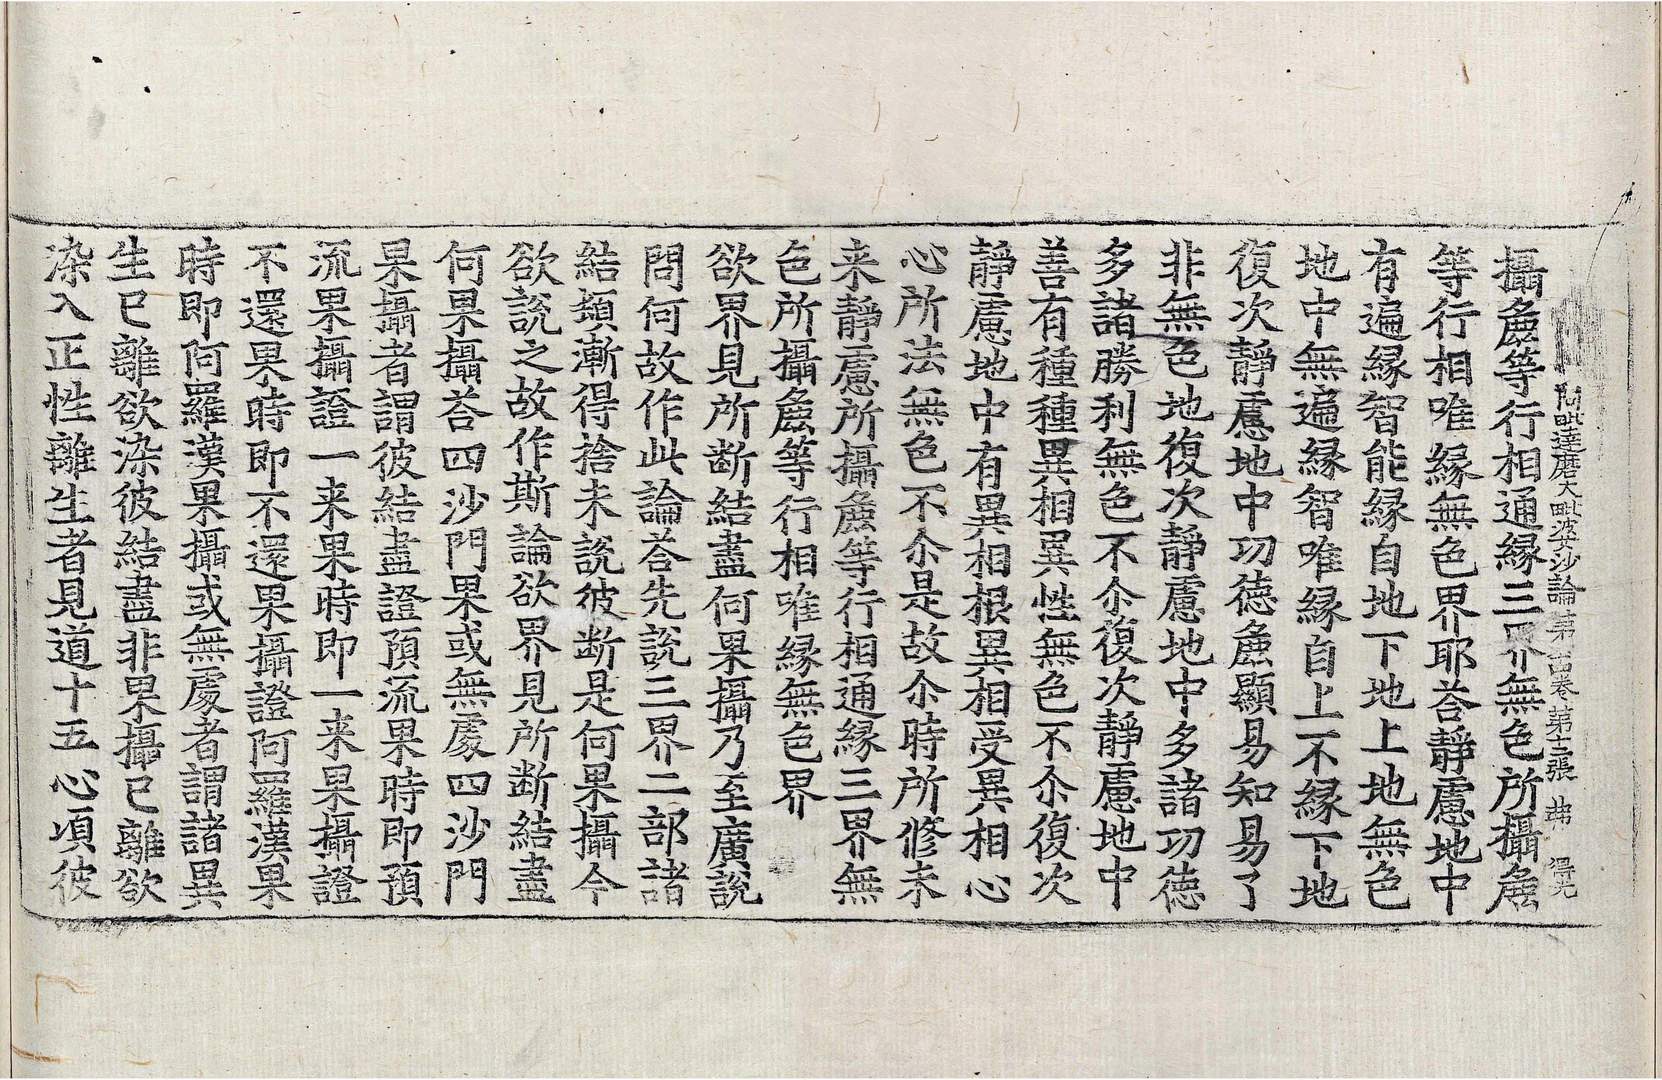 阿毗達磨大毗婆沙論 第 卷 第 張 弗 得光
攝麁等行相通緣三界無色所攝麁
等行相唯緣無色界耶荅靜慮地中
有遍緣智能緣自地下地上地無色
地中無遍緣智唯緣自上不緣下地
復次靜慮地中功德麁顯易知易了
非無色地復次靜慮地中多諸功德
多諸勝利無色不尒復次靜慮地中
善有種種異相異性無色不尒復次
靜慮地中有異相根異相受異相心
心所法無色不尒是故尒時所修未
来靜慮所攝麁等行相通緣三界無
色所攝麁等行相唯緣無色界
欲界見所断結盡何果攝乃至廣說
問何故作此論荅先說三界二部諸
結頓漸得捨未說彼断是何果攝今
欲說之故作斯論欲界見所断結盡
何果攝荅四沙門果或無處四沙門
果攝者謂彼結盡證預流果時即預
流果攝證一来果時即一来果攝證
不還果時即不還果攝證阿羅漢果
時即阿羅漢果攝或無處者謂諸異
生已離欲染彼結盡非果攝已離欲
染入正性離生者見道十五心頃彼